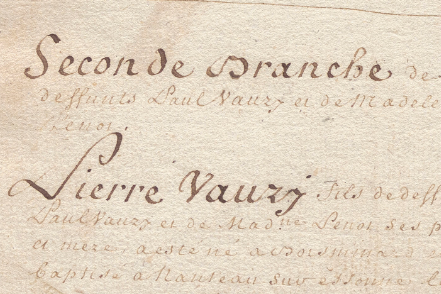 Seconde Branche de
deffunts Paul Vauzy et de Madele
Lenoi.
Pierre Vauzy Fils de deff
Paul Vauzy et de Mad.ne Lenoi, ses p
et mere, a esté né a Boisminard
baptisé a Nanteau sur essonne, l